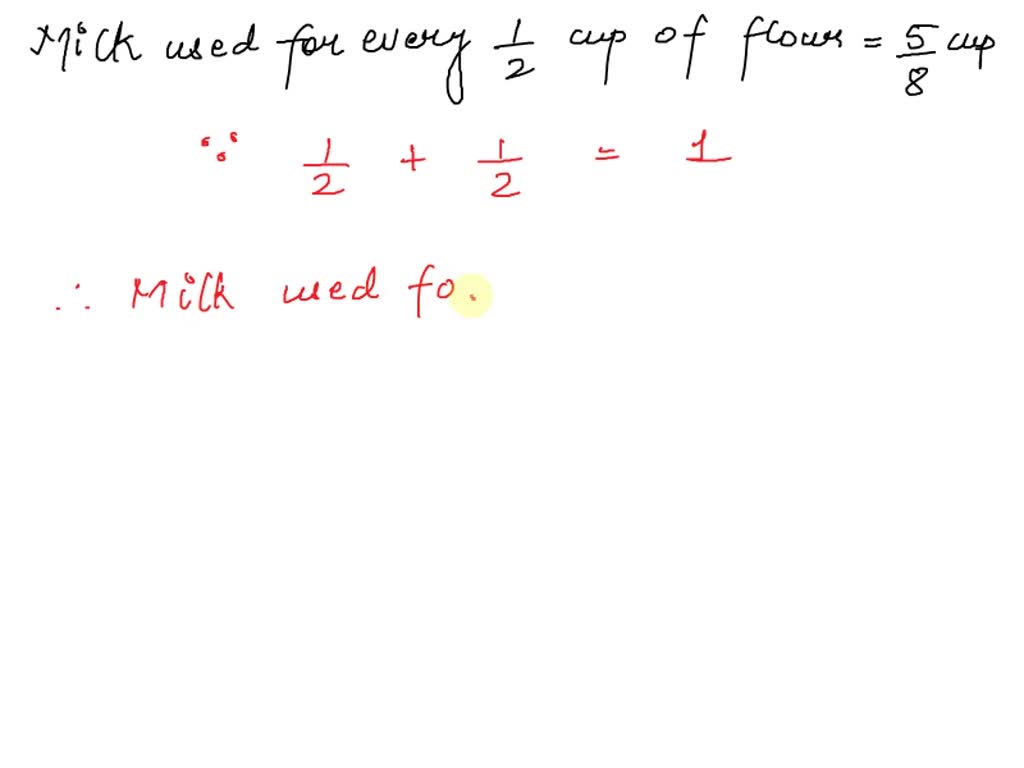 Milk used for every 1/2 cup of flour = 5/8 cup
∵ 1/2 + 1/2 = 1
∴ Milk used fo.